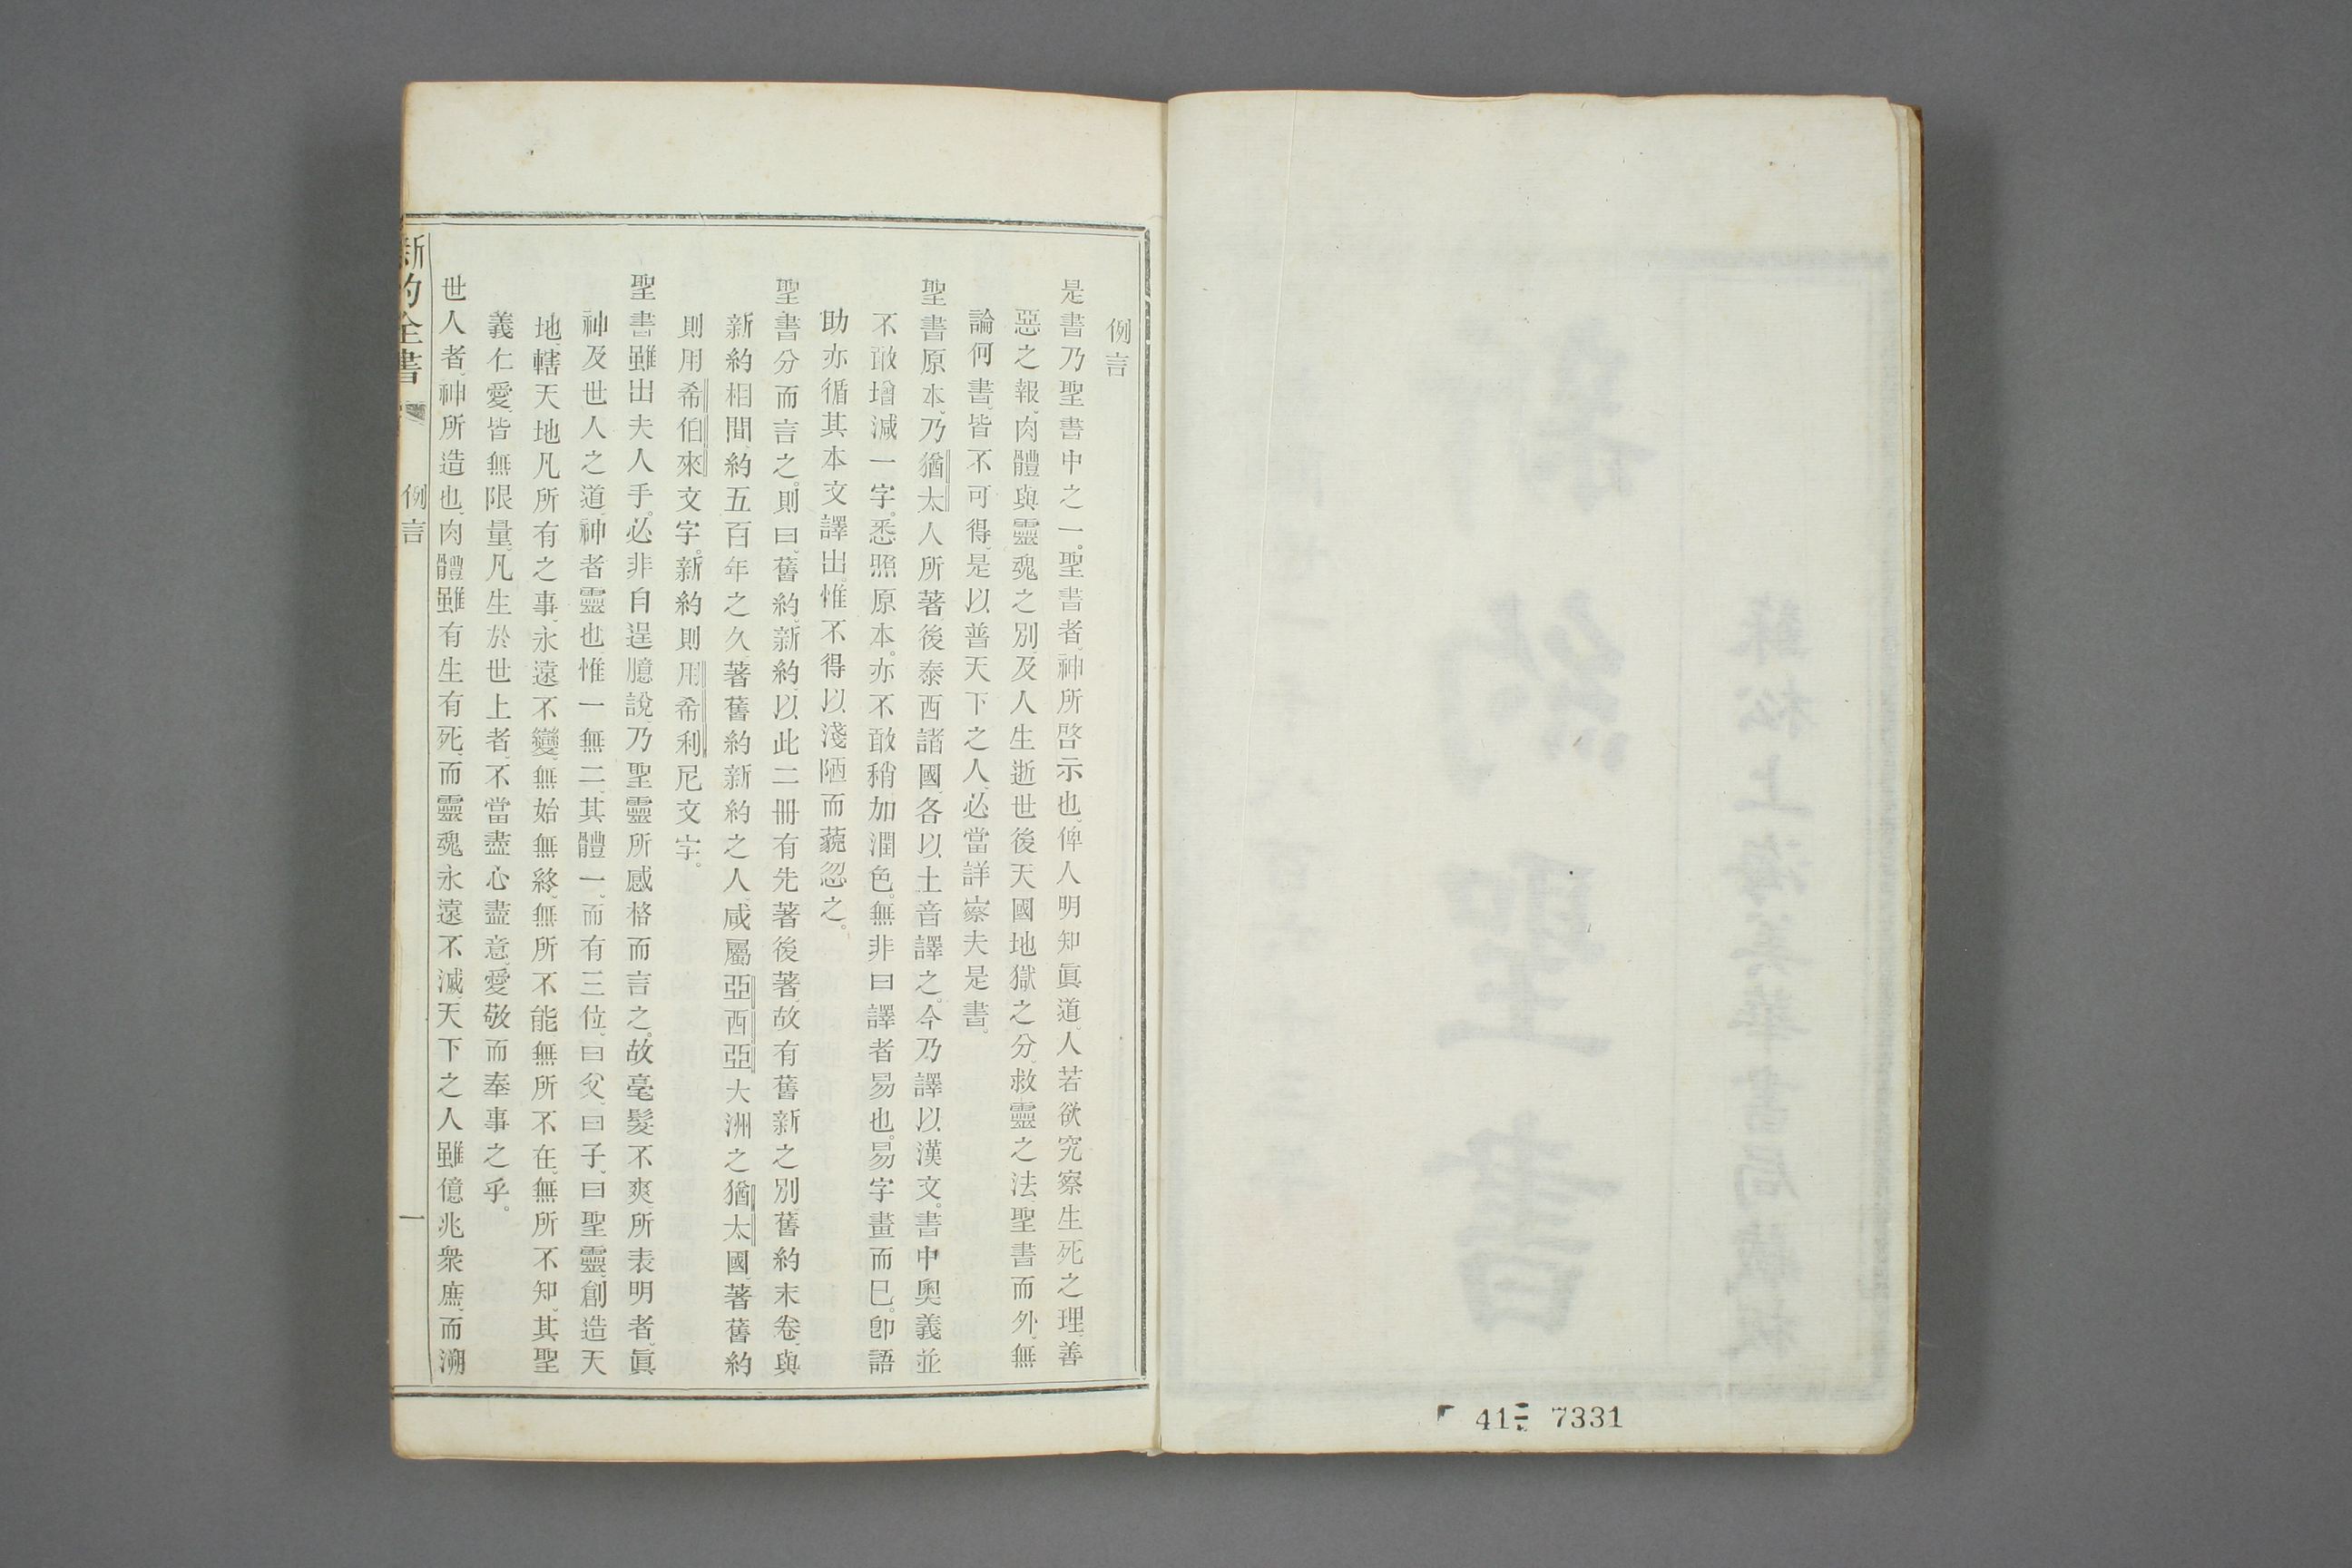 例言
是書乃聖書中之一。聖書者、神所啓示也、俾人明知眞道。人若欲究察生死之理、善
惡之報、肉體與靈魂之別、及人生逝世後、天國地獄之分、救靈之法、聖書而外、無
論何書、皆不可得、是以普天下之人、必當詳察夫是書。
聖書原本、乃猶太人所著、後泰西諸國、各以土音譯之。今乃譯以漢文。書中奧義、並
不敢增減一字。悉照原本。亦不敢稍加潤色。無非曰譯者易也。易字畫而已。卽語
助亦循其本文譯出。惟不得以淺陋而藐忽之。
聖書分而言之。則曰、舊約、新約、以此二冊有先著後著、故有舊新之別、舊約末卷、與
新約相間、約五百年之久、著舊約新約之人、咸屬亞西亞大洲之猶太國、著舊約
則用希伯來文字。新約則用希利尼文字。
聖書雖出夫人手。必非自逞臆說、乃聖靈所感格而言之。故毫髮不爽、所表明者、眞
神及世人之道、神者靈也、惟一無二、其體一、而有三位、曰父、曰子、曰聖靈、創造天
地、轄天地凡所有之事、永遠不變、無始無終、無所不能、無所不在、無所不知、其聖
義仁愛、皆無限量、凡生於世上者、不當盡心盡意、愛敬而奉事之乎。
世人者、神所造也、肉體雖有生有死、而靈魂永遠不滅、天下之人、雖億兆衆庶、而溯
新約全書
例言
一
41 7331